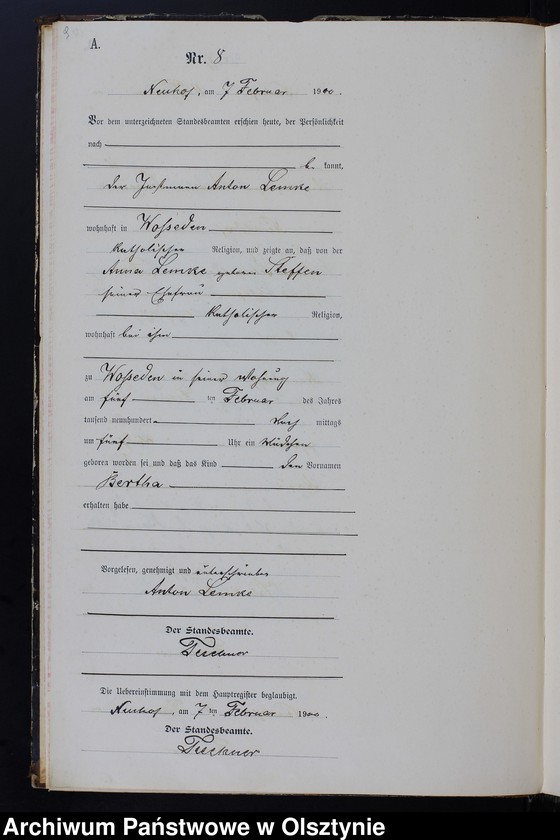 A.
Nr. 8
Neuhof, am 7 Februar 1900.
Vor dem unterzeichneten Standesbeamten erschien heute, der Persönlichkeit
nach
be kannt,
der Anton Lemke
wohnhaft in Wosseden
katholischer Religion, und zeigte an, daß von der
Anna Lemke geboren Steffen
seiner Ehefrau
katholischer Religion,
wohnhaft bei ihm
zu Wosseden in seiner Wohnung
am fünf ten Februar des Jahres
tausend neunhundert Nach mittags
um fünf Uhr ein Mädchen
geboren worden sei und daß das Kind den Vornamen
Bertha
erhalten habe
Vorgelesen, genehmigt und unterschrieben
Anton Lemke
Der Standesbeamte.
Die Uebereinstimmung mit dem Hauptregister beglaubigt.
Neuhof, am 7 ten Februar 1900.
Der Standesbeamte.
Archiwum Państwowe w Olsztynie